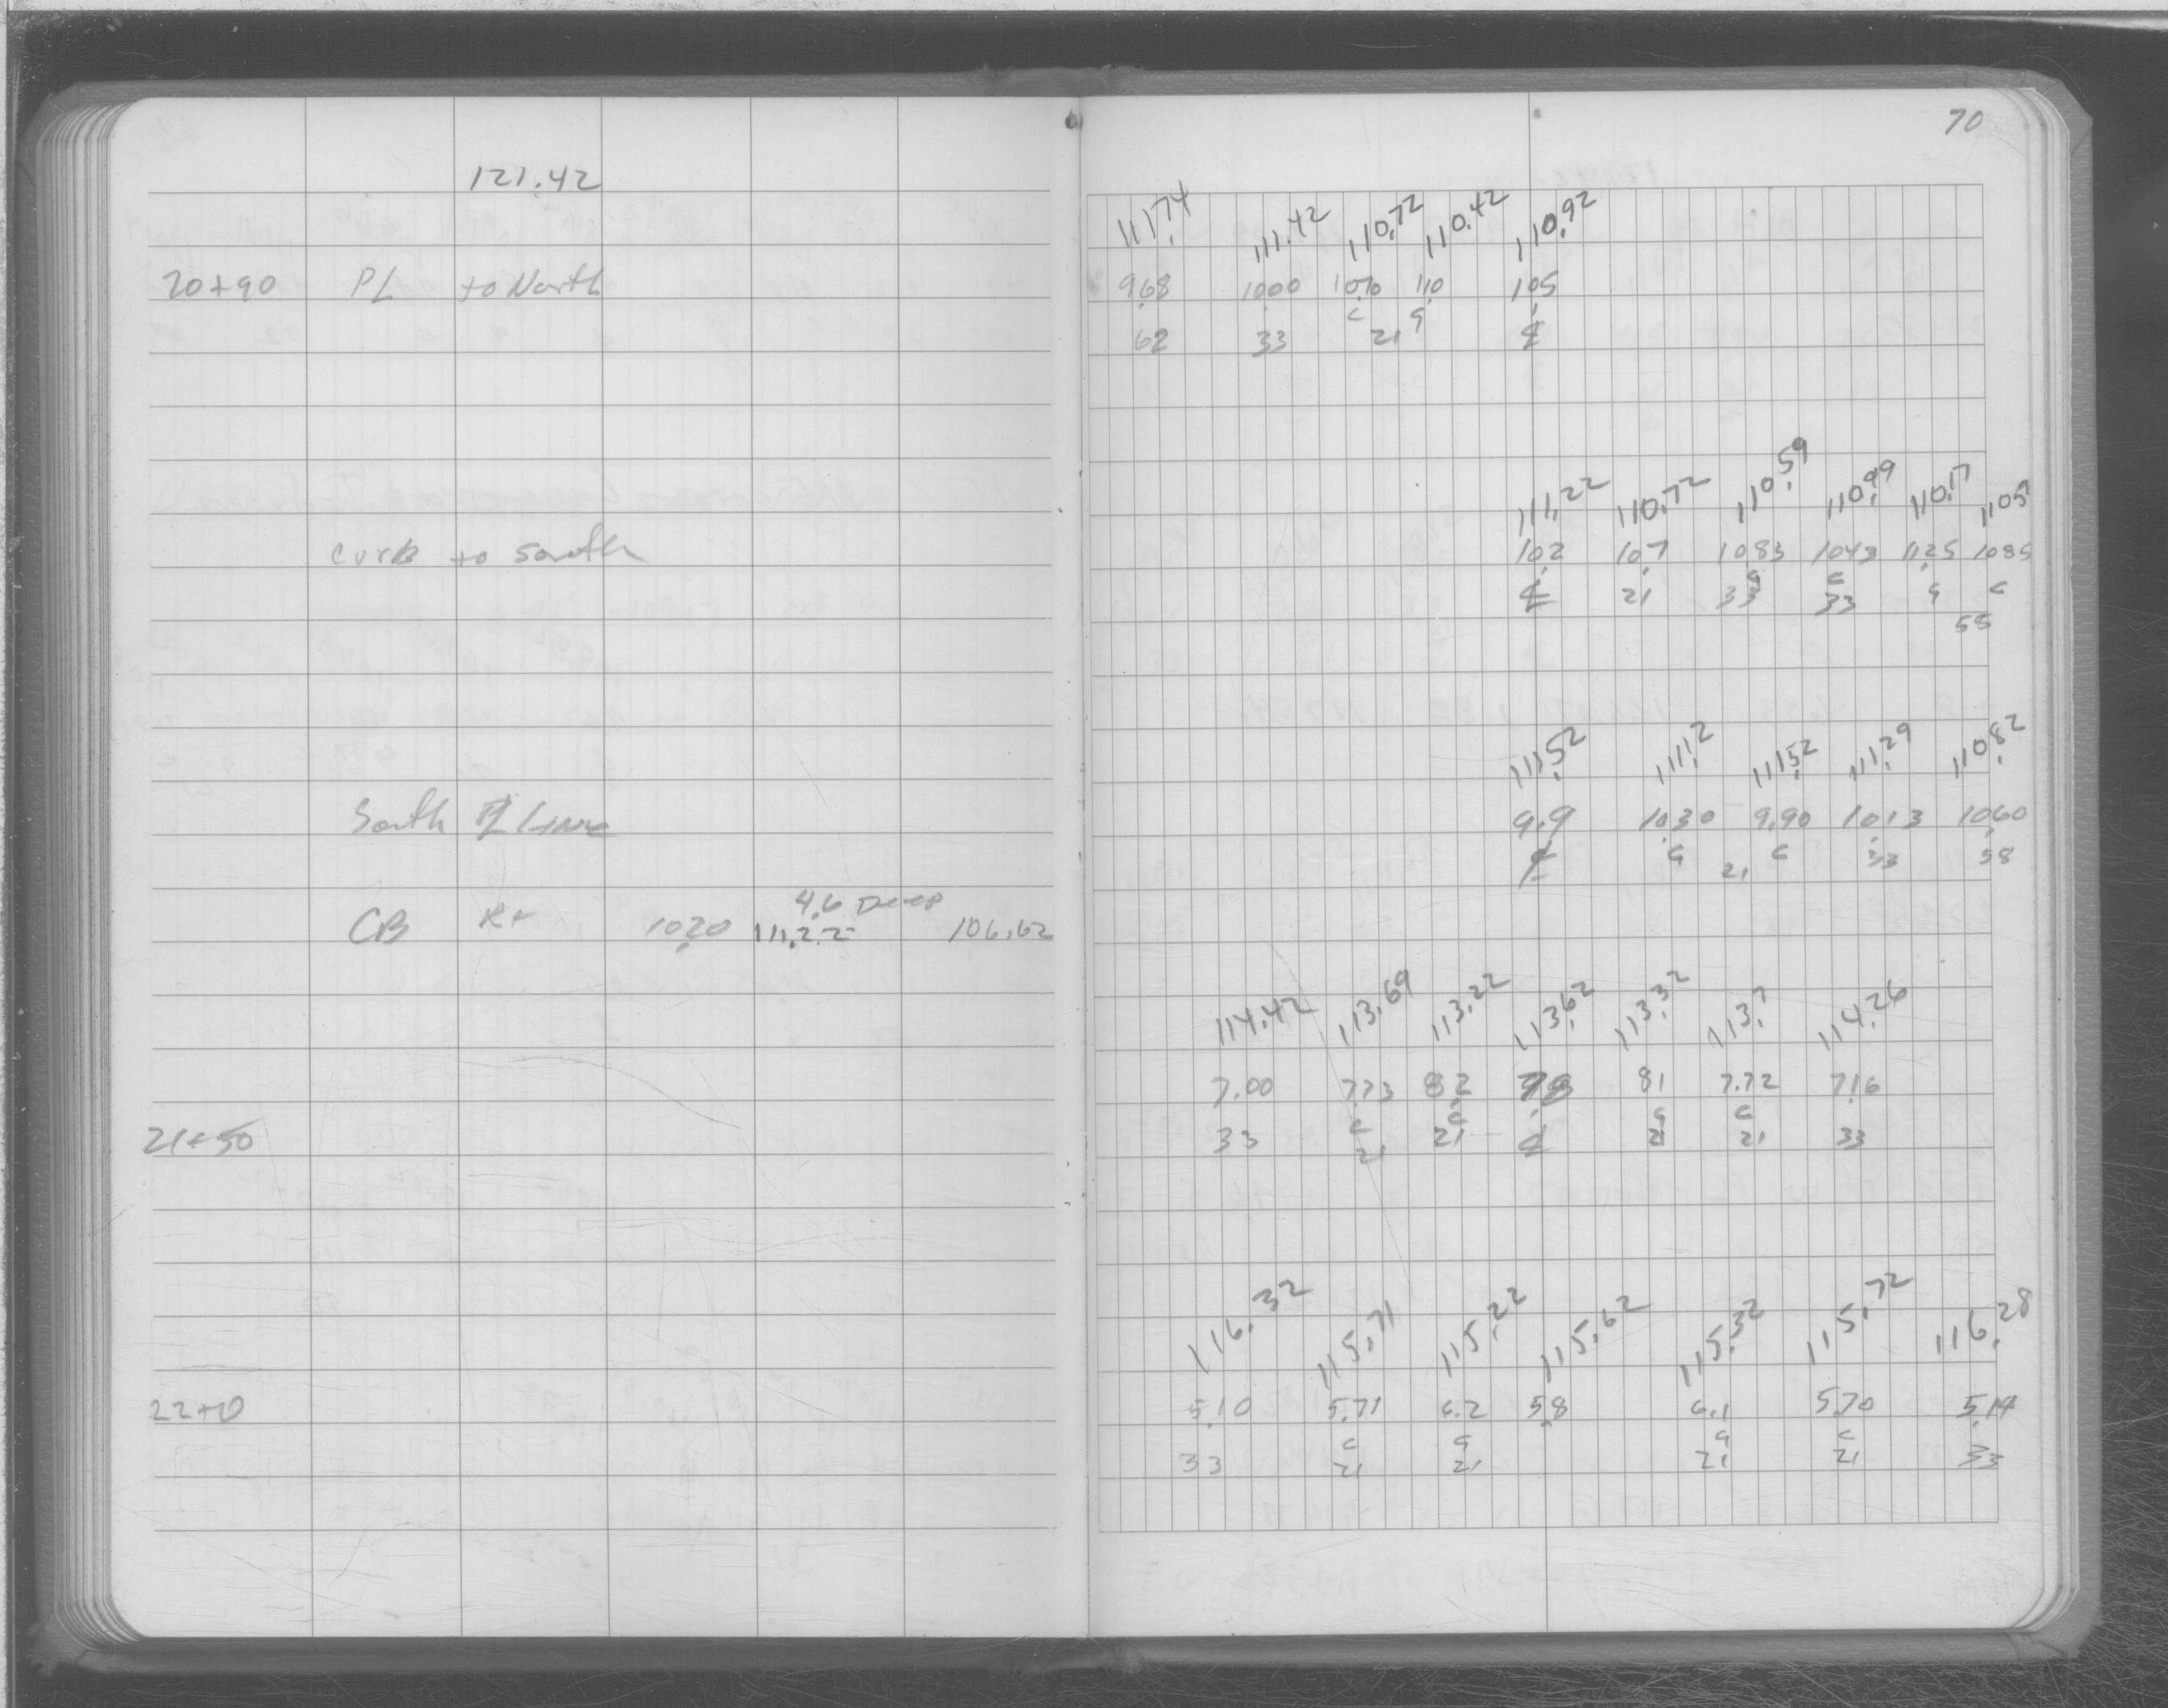 70
121.42
111.74 111.42 110.72 110.42 110.92
20+90 PL to North 9.68 10.00 10.70 11.0 10.5
c G
62 33 21 ℄
111.22 110.72 110.59 110.99 110.17 110.57
curb to South 10.2 10.7 10.83 10.43 11.25 10.85
G c
℄ 21 33 33 G c
58
111.52 111.12 111.52 111.29 110.82
South PL Line 9.9 10.30 9.90 10.13 10.60
℄ G c 33 58
21
4.6 Deep
CB Rt 10.20 111.22 106.62
114.42 113.69 113.22 113.62 113.32 113.7 114.26
7.00 7.73 8.2 7.8 8.1 7.72 7.16
c G G c
21+50 33 21 21 ℄ 21 21 33
116.32 115.71 115.22 115.62 115.32 115.72 116.28
22+0 5.10 5.71 6.2 5.8 6.1 5.70 5.14
c G G c
33 21 21 21 21 33